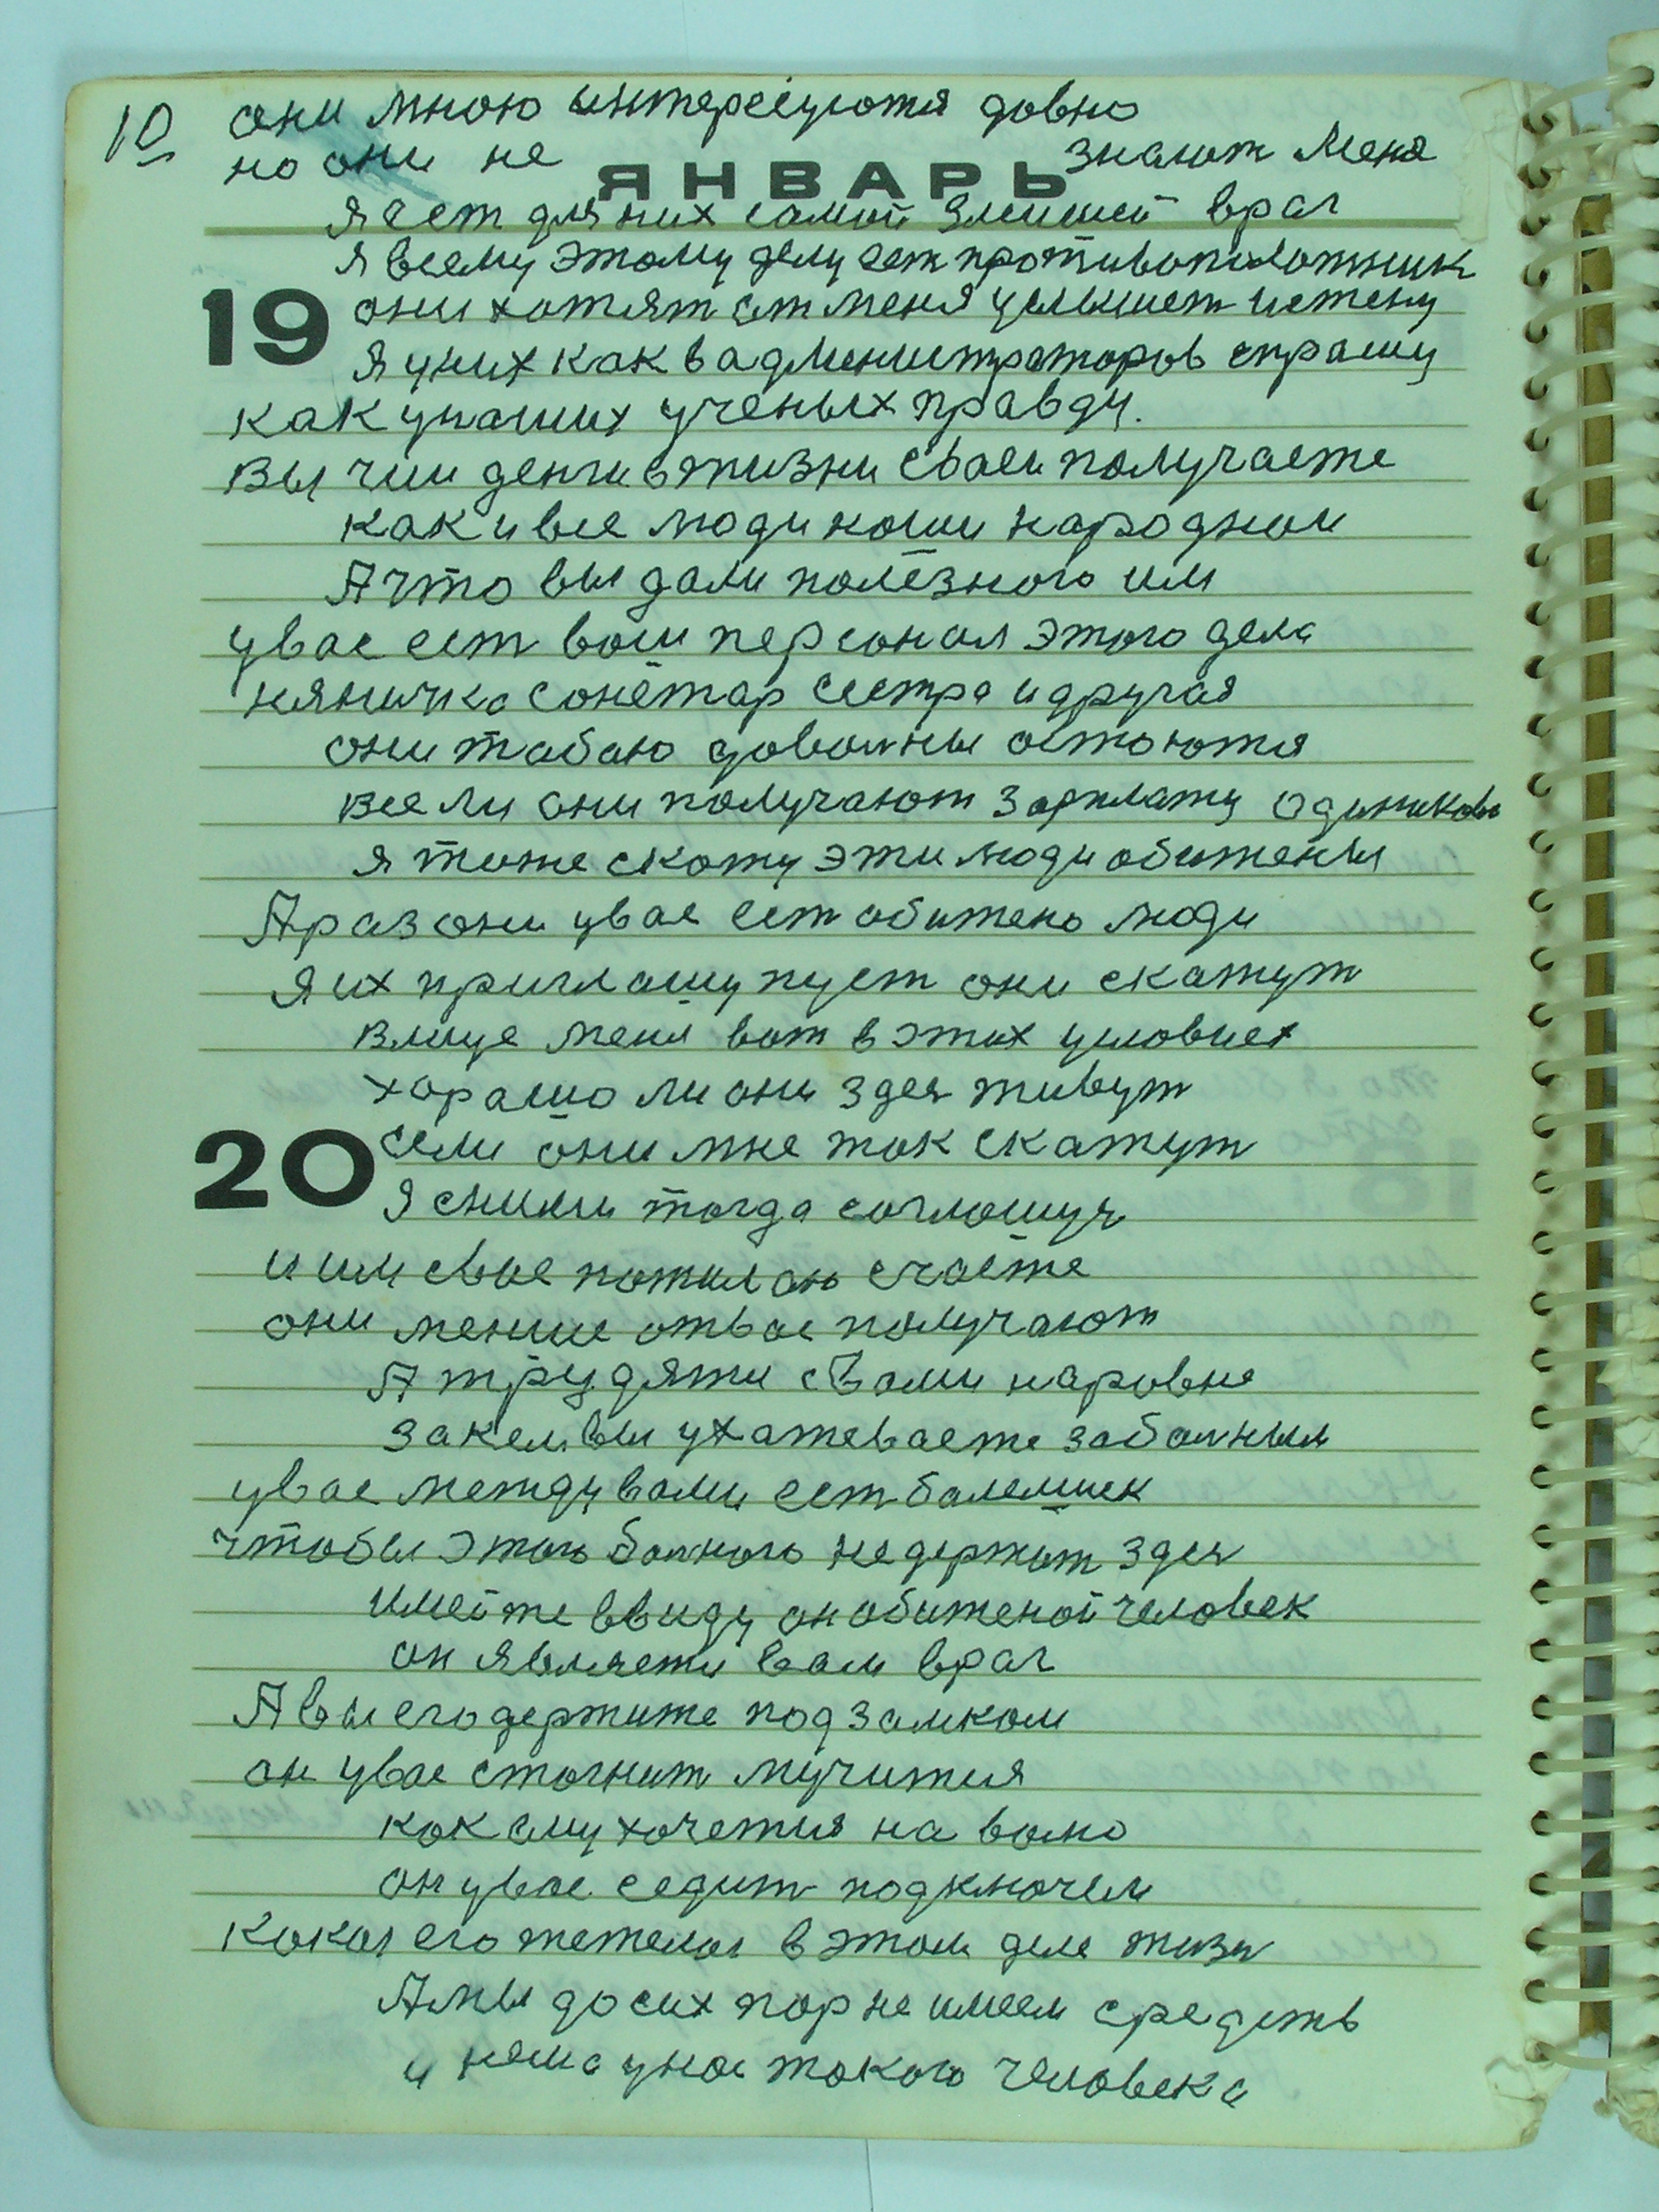 10 они мною интересуются давно
но они не знают меня
ЯНВАРЬ
я ест для них самой злейшей враг
я всему этому делу ест противоположник
19 они хотят от меня услышет истену
я у них как в админитраторов спрашу
как у наших ученых правду.
Вы чии денги в жизни своеи получаете
как и все люди наши народнои
А что вы дали полезного им
у вас ест ваш персонал этого дела
няничка санетар сестра и другая
они табаю доволны остаются
все ли они получают зарплату одинаково
я тоже скажу эти люди обижены
А раз они у вас ест обижено люди
я их приглашу пуст они скажут
в лице меня вот в этих условиех
харашо ли они здес живут
20 если они мне так скажут
я сними тогда соглашус
и им свое пожилаю счастье
они менше от вас получают
А трудятс с Вами наровне
за кем вы ухажеваете за болным
у вас между вами ест балелшик
чтобы этого болного не держат здес
имейте ввиду он обиженой человек
он являетс вам враг
А вы его держите под замком
он у вас стогнит мучится
как ему хочется на волю
он у вас седит под ключем
какая его тежелая в этом деле жизн
А мы до сих пор не имеем средств
и нема у нас такого человека